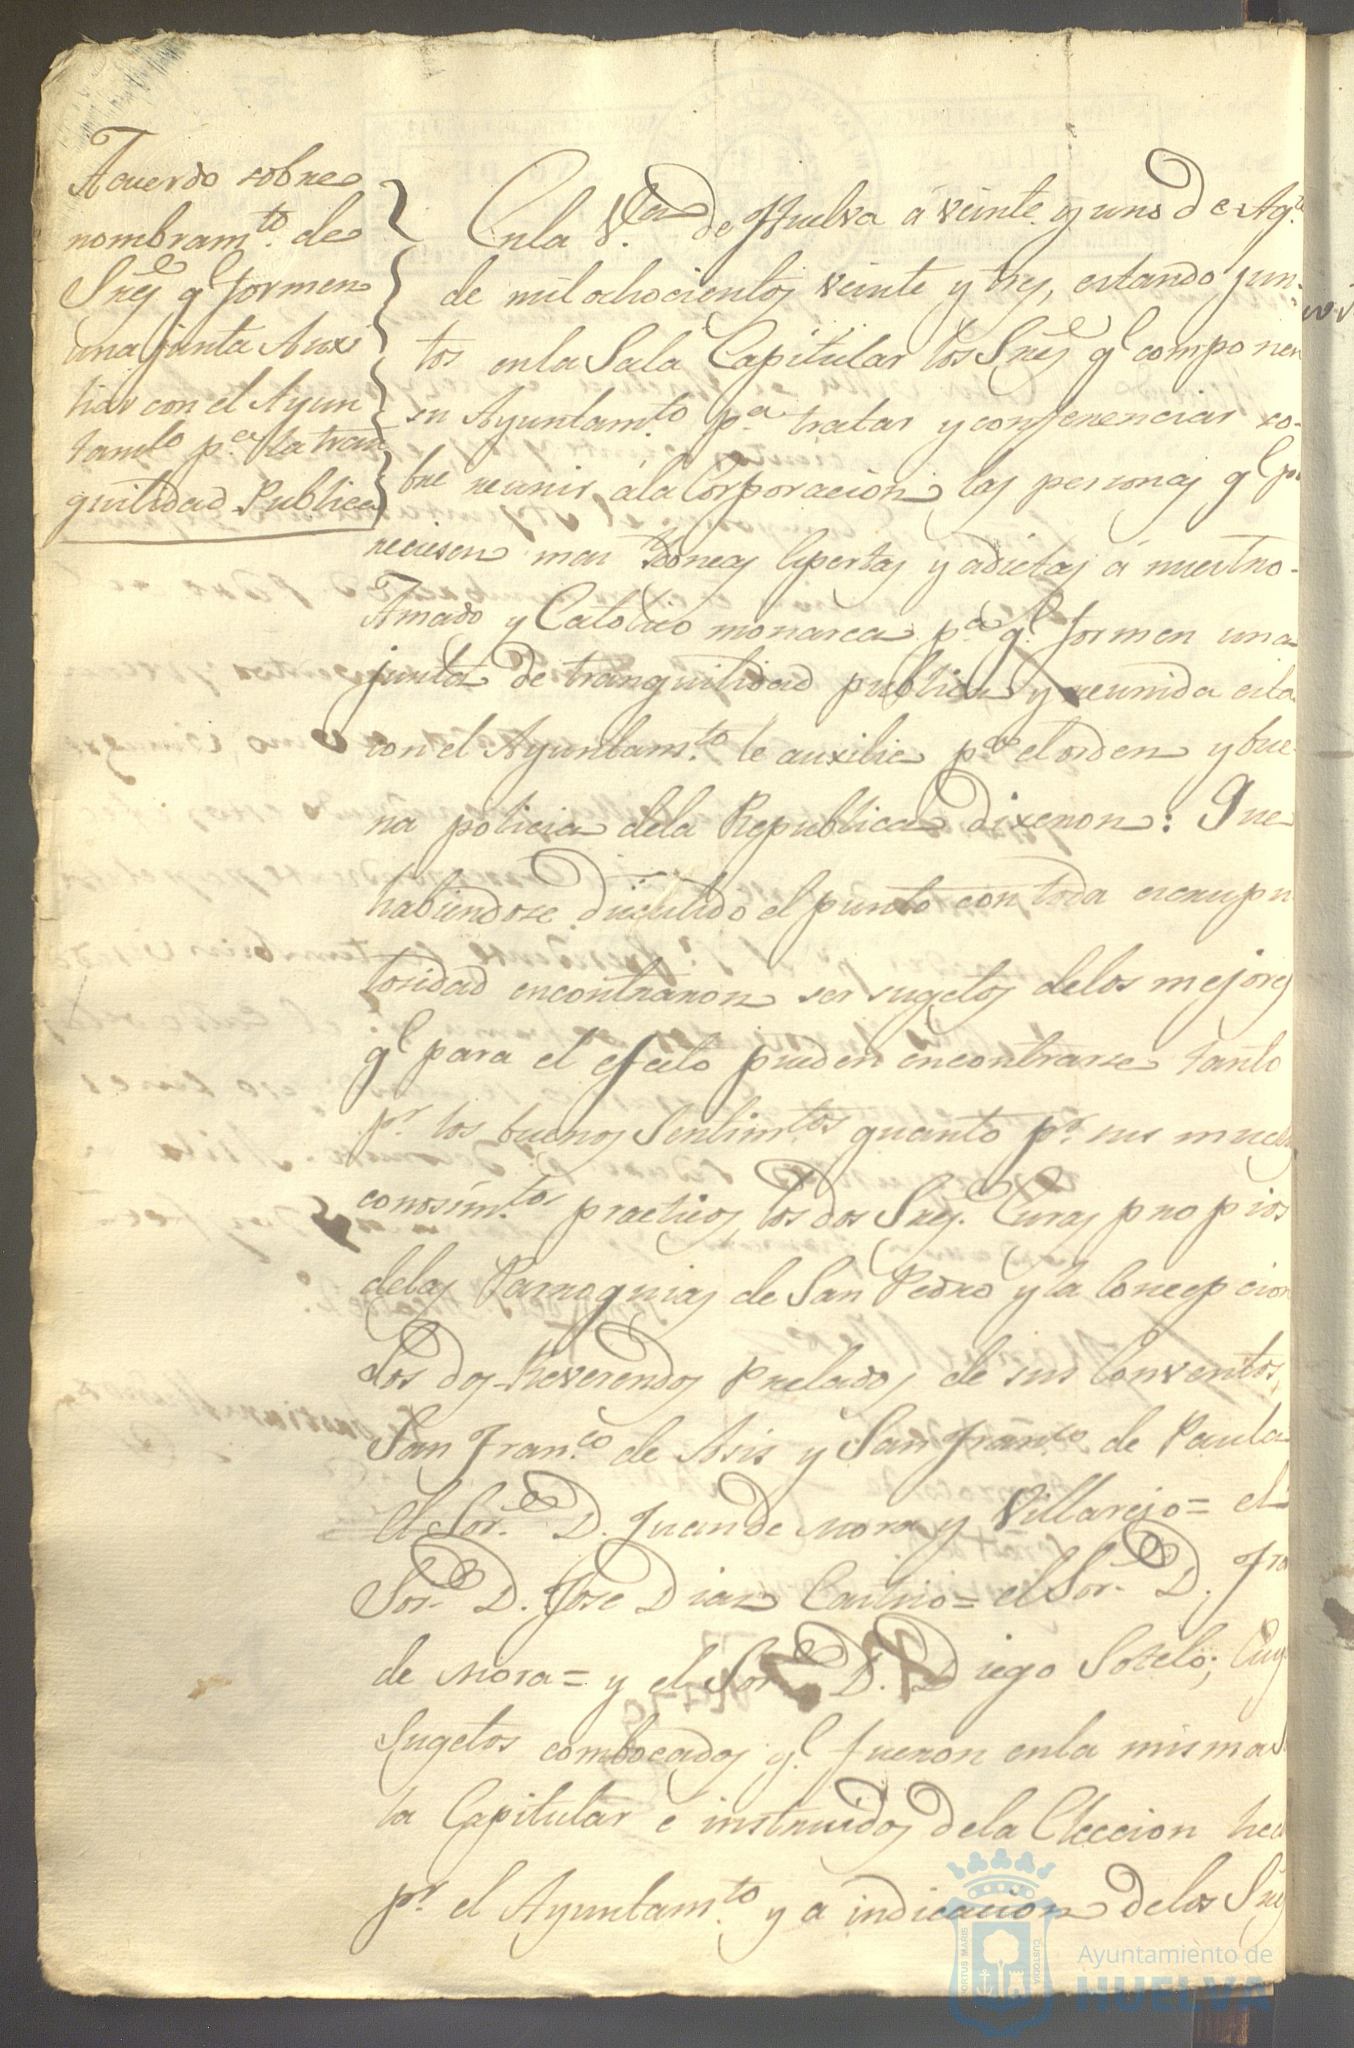 Acuerdo sobre
nombram.to de
Sres q.e formen
una junta Auxi
liar con el Ayun
tam.to p.a la tran
quilidad Publica
En la V.lla de Huelva á veinte y uno de Ag.to
de mil ochocientos veinte y tres, estando jun-
tos en la Sala Capitular los Sres q.e componen
su Ayuntam.to p.a tratar y conferenciar so-
bre reunir á la Corporacion las personas q.e pa
reciesen mas idoneas expertas y adictas á nuestro
Amado y Catolico monarca p.a q.e formen una
junta de tranquilidad publica y reunida esta
con el Ayuntam.to le auxilie p.a el orden y bue
na policia dela Republica Dixeron: Que
habiendose discutido el punto con toda escrupu
losidad encontraron ser sugetos delos mejores
q.e para el efecto pueden encontrarse tanto
p.r los buenos Sentim.tos quanto p.r sus muchos
conosim.tos practicos, los dos Sres. Curas propios
delas Parroquias de San Pedro y la Concepcion
Los dos Reverendos Prelados de sus Conventos,
San Fran.co de Asis y San Fran.co de Paula
el Sor. D. Juan de Mora y Villarejo = el
Sor. D. Jose Diaz Castrio = el Sor. D. Fra
de Mora = y el Sor. D. Diego Sotelo; Cuy
Sugetos combocados q.e fueron en la misma
la Capitular e instruidos dela Eleccion hec
p.r el Ayuntam.to y a indicacion delos Sres
PORTUS MARIS CUSTODIA
Ayuntamiento de
HUELVA